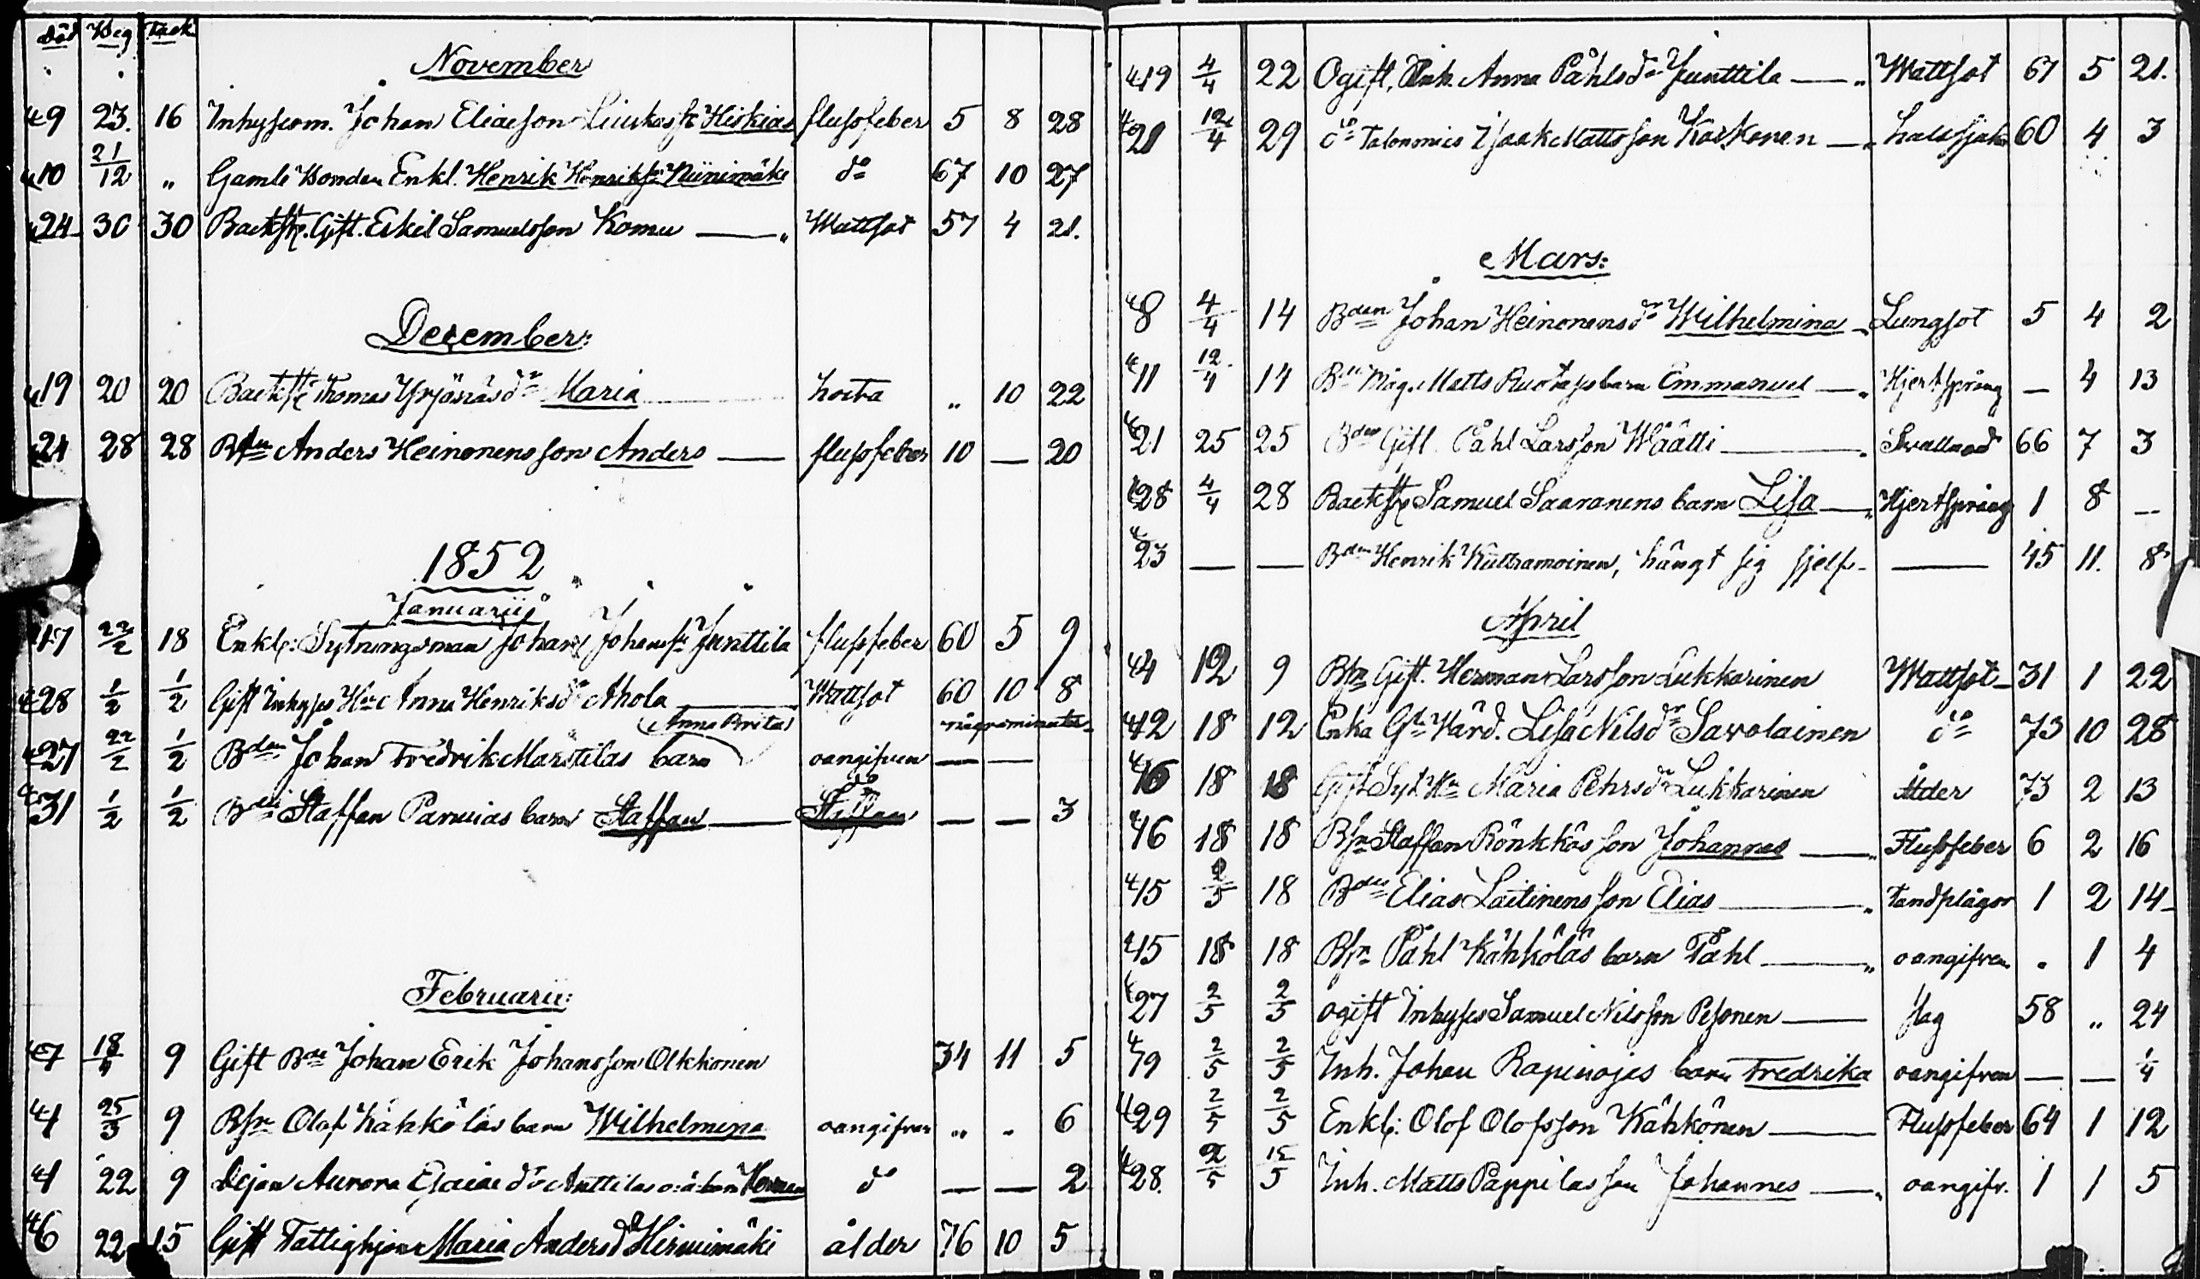 Död Beg Tack
November
9 23. 16 Inhyses m. Johan Eliasson Liukas sn Hiskias flussfeber 5 8 28
10 21/12 " Gamle Bonden Enkl. Henrik Henrikss. Niinimäki do 67 10 27
24 30 30 Backst. Gift. Eskil Samuelsson Komu — " Wattsot 57 4 21.
December:
19 20 20 Backst. Thomas Yrjänäs dr Maria hosta " 10 22
24 28 28 Bdn Anders Heinonens son Anders — flussfeber 10 — 20
1852
Januarii
17 22/2 18 Enkl: Sytningsman Johan Johanss. Junttila flussfeber 60 5 9
28 1/2 1/2 Gift Inhyses Hu Anna Henriksdr Ahola Wattsot 60 10 8
Anna Brita några minuter
27 22/2 1/2 Bden Johan Fredrik Marttilas barn oangifven — —
31 1/2 1/2 Bden Staffan Parviais barn Staffan — do — — 3
Februarii:
7 18/4 9 Gift Bde Johan Erik Johansson Olkkonen 34 11 5
4 25/3 9 Bsn Olof Kähköläs barn Wilhelmina oangifven " . 6
4 22 9 Pigan Aurora Esaiae dr Anttilas o:ä: barn Herman do — — 2
6 22 15 Gift Fattighjon Maria Andersd Hirvimäki ålder 76 10 5
19 4/4 22 Ogift, Inh. Anna Påhlsdr Junttila — " Wattsot 67 5 21.
21 12/4 29 do Isaak Mattsson Korkonen — " halssjuka 60 4 3
Mars:
8 4/4 14 Bden Johan Heinonens dr Wilhelmina Lungsot 5 4 2
11 12/4 14 Matts barn Emmanuel — " Hjertsprång — 4 13
21 25 25 Bden Gift. Påhl Larsson Wäätti — . 66 7 3
28 4/4 28 Backst Samuel Saaranens barn Lisa — " Hjertsprång 1 8 —
23 — — Bden Henrik, hängt sig sjelf — — 45 11. 8
April
4 12 9 Bsn Gift. Herman Larsson Lukkarinen Wattsot — 31 1 22
12 18 12 Enka Lisa Nilsdr Savolainen do 73 10 28
16 18 18 Gift Syt. Hu Maria Pehrsdr Lukkarinen Ålder 73 2 13
16 18 18 Bsn Staffan Rönkkös son Johannes — " Flussfeber 6 2 16
15 2/5 18 Bdes Elias Laitinens son Elias — " tandplågor 1 2 14
15 18 18 Bsn Påhl Kähköläs barn Påhl — " oangifven . 1 4
27 2/5 2/5 ogift Inhyses Samuel Nilsson Pesonen — slag 58 " 24
19 2/5 2/5 Inh. Johan Rapinojas barn Fredrika oangifven — — 1/4
29 2/5 2/5 Enkl: Olof Olofsson Kähkönen — Flussfeber 64 1 12
28. 2/5 15/5 Inh. Matts Pappilas son Johannes — " oangifv. 1 1 5